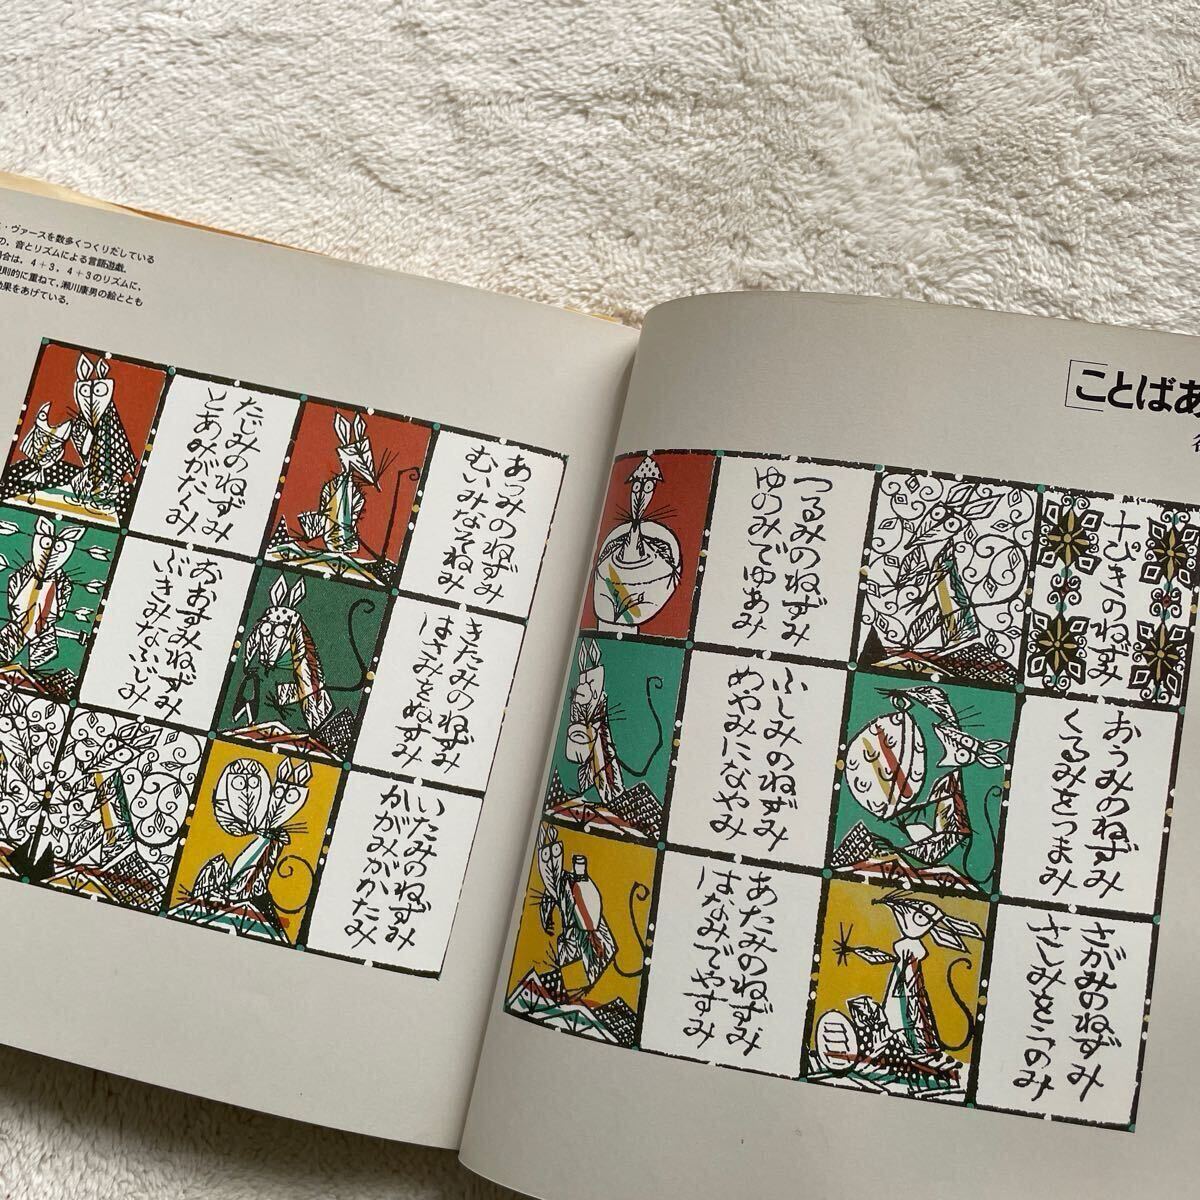 ことばあ
十ぴきのねずみ
おうみのねずみ
くるみをつまみ
さがみのねずみ
さしみをこのみ
つるみのねずみ
ゆのみでゆあみ
ふしみのねずみ
めやみになやみ
あたみのねずみ
はなみでやすみ
・ヴァースを数多くつくりだしている
の，音とリズムによる言語遊戯．
合は，4＋3，4＋3のリズムに，
則的に重ねて，瀬川康男の絵ととも
果をあげている．
あつみのねずみ
むいみなそねみ
きたみのねずみ
はさみをぬすみ
いたみのねずみ
かがみがかたみ
たじみのねずみ
とあみがたくみ
おおすみねずみ
ぶきみなふじみ